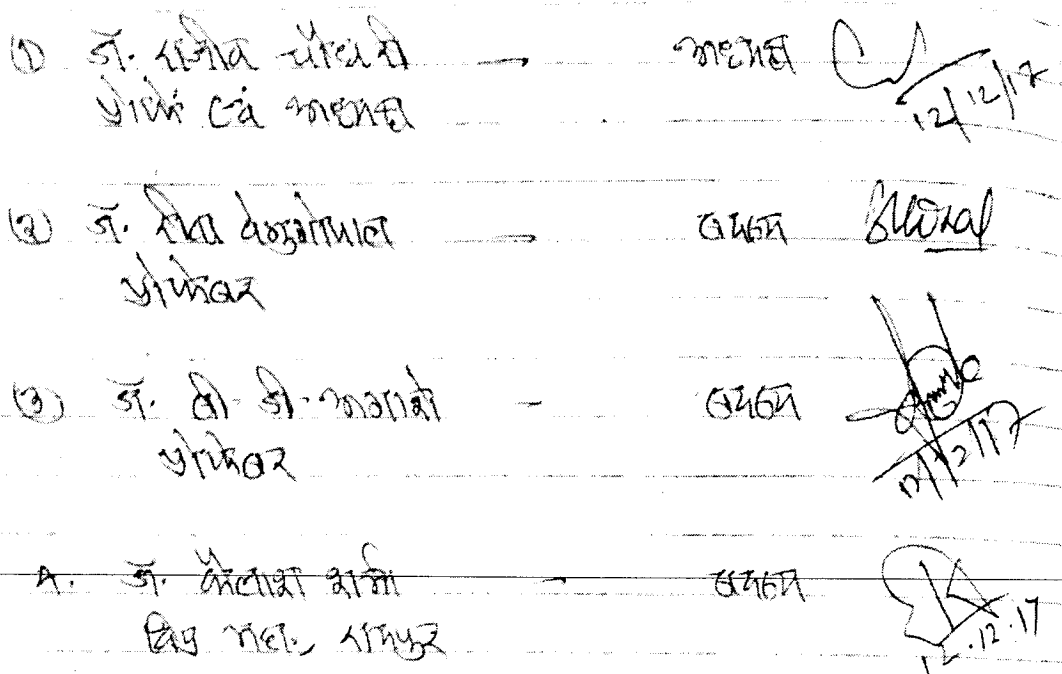 ① डॉ. राजीव चौधरी — अध्यक्ष 12/12/17
प्रोफे. एवं अध्यक्ष
② डॉ. रीता वेणुगोपाल — सदस्य
प्रोफेसर
③ डॉ. सी. डी. आगाशे - सदस्य 12/12/17
प्रोफेसर
4. डॉ. कैलाश शर्मा - सदस्य 12.12.17
विप्र महा., रायपुर